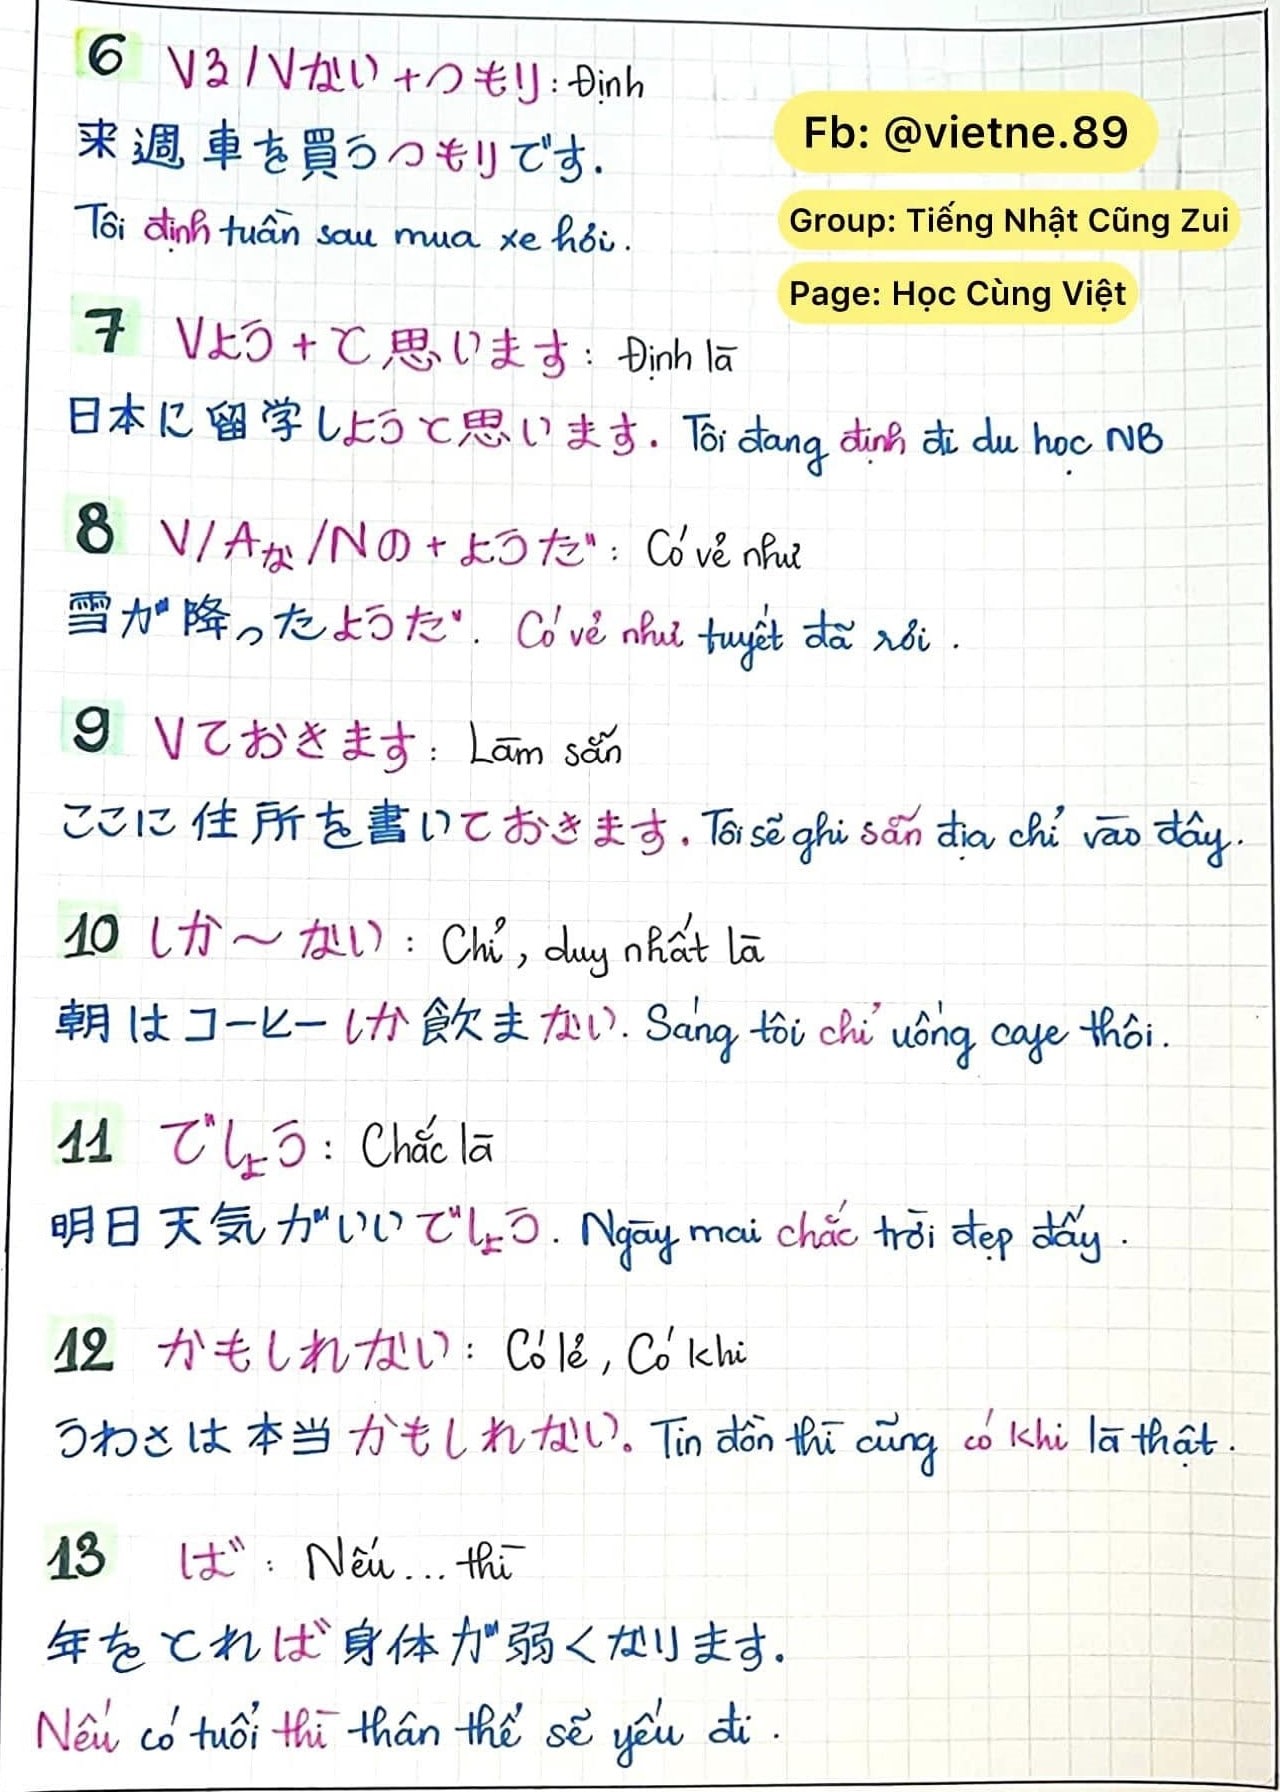 6 Vる/Vない+つもり: Định
来週車を買うつもりです.
Tôi định tuần sau mua xe hơi.
Fb: @vietne.89
Group: Tiếng Nhật Cũng Zui
Page: Học Cùng Việt
7 Vよう+と思います: Định là
日本に留学しようと思います. Tôi đang định đi du học NB
8 V/Aな/Nの+ようだ: Có vẻ như
雪が降ったようだ. Có vẻ như tuyết đã rơi.
9 Vておきます: Làm sẵn
ここに住所を書いておきます. Tôi sẽ ghi sẵn địa chỉ vào đây.
10 しか~ない: Chỉ, duy nhất là
朝はコーヒーしか飲まない. Sáng tôi chỉ uống cafe thôi.
11 でしょう: Chắc là
明日天気がいいでしょう. Ngày mai chắc trời đẹp đấy.
12 かもしれない: Có lẻ, Có khi
うわさは本当かもしれない。Tin đồn thì cũng có khi là thật.
13 ば: Nếu... thì
年をとれば身体が弱くなります.
Nếu có tuổi thì thân thể sẽ yếu đi.